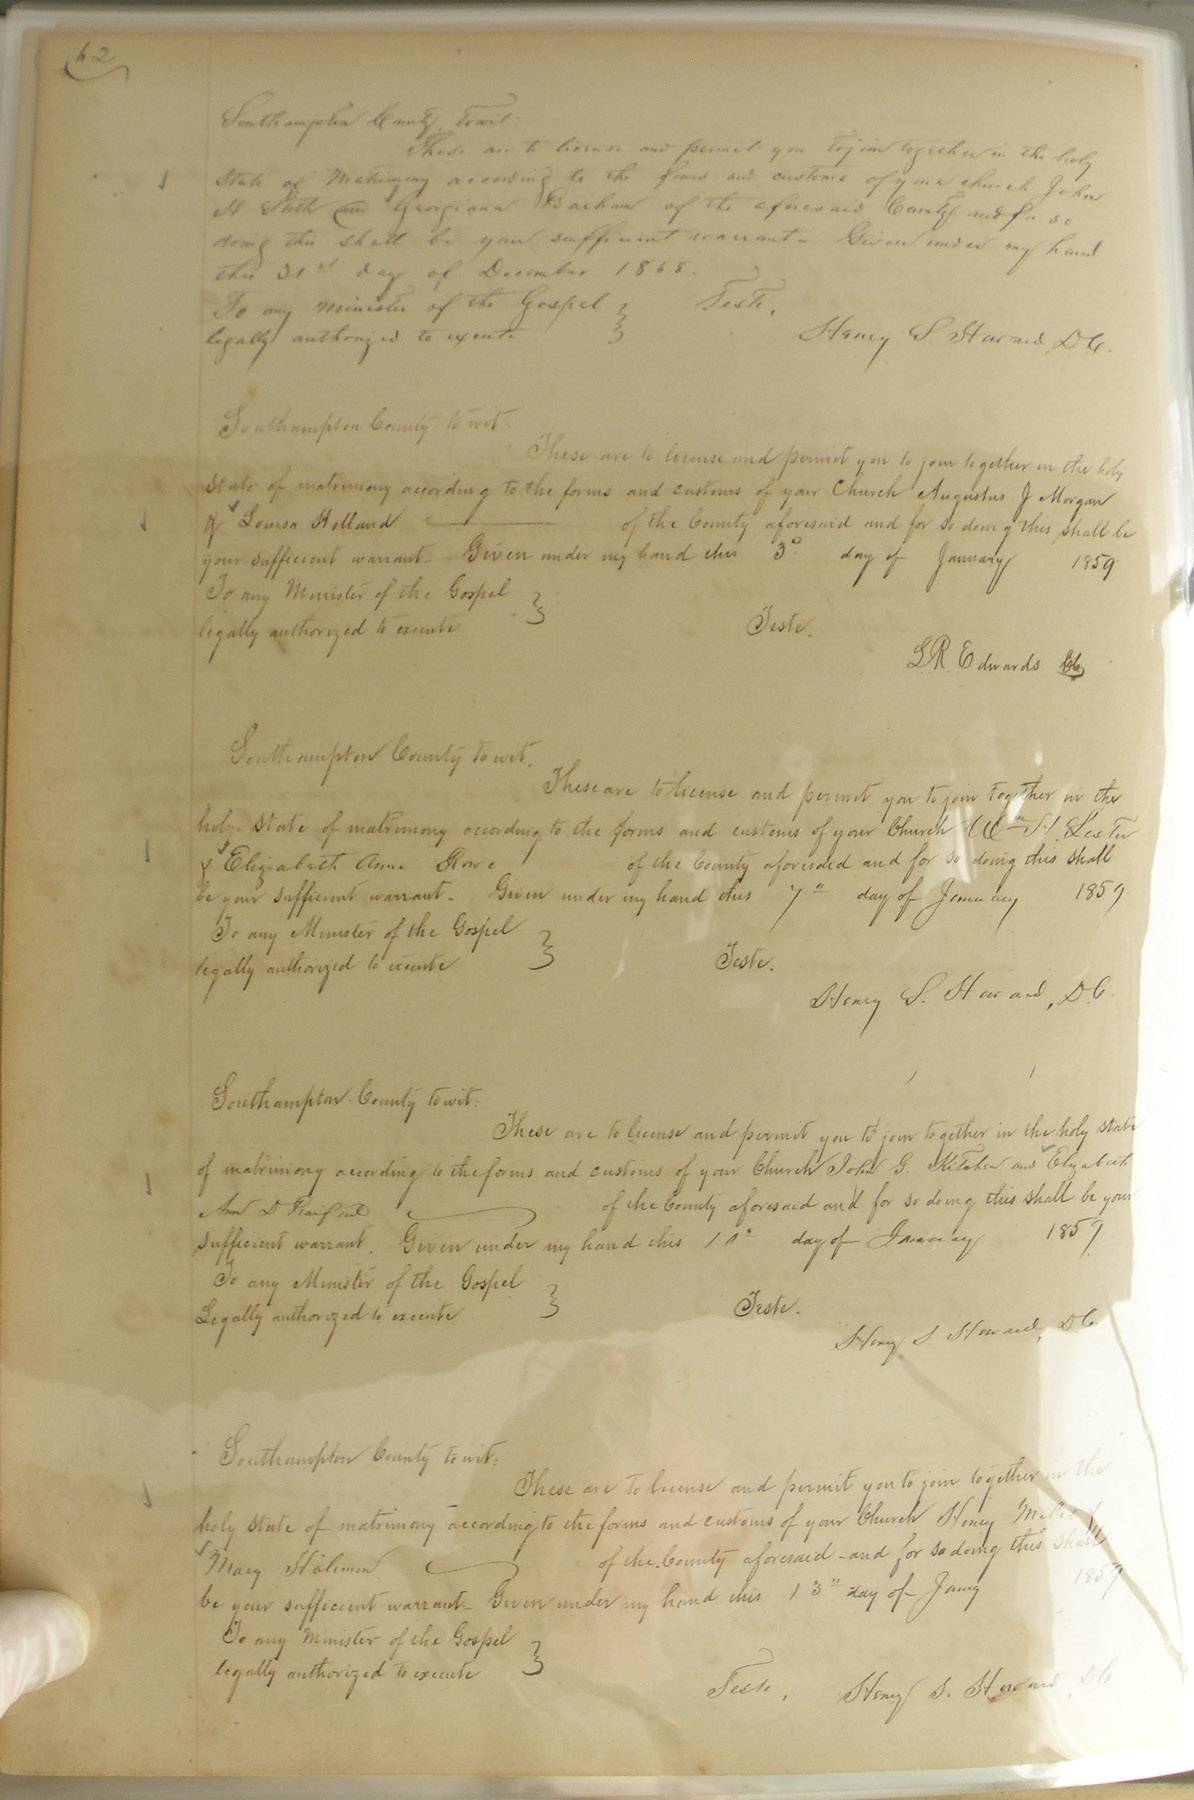 62
Southampton County, towit:
These are to license and permit you to join together in the holy
State of Matrimony according to the forms and customs of your church John
H and Georgiana of the aforesaid County and for so
doing this shall be your sufficient warrant. Given under my hand
this 31st day of December 1858.
To any minister of the Gospel } Teste,
legally authorized to execute
Henry S. Howard, D.C.
Southampton County to wit:
These are to license and permit you to join together in the holy
state of matrimony according to the forms and customs of your Church Augustus J Morgan
& Louisa Holland of the County aforesaid and for so doing this shall be
your sufficient warrant. Given under my hand this 3d day of January 1859
To any Minister of the Gospel }
legally authorized to execute Teste.
L R Edwards
Southampton County to wit.
These are to license and permit you to join together in the
holy state of matrimony according to the forms and customs of your Church Wm H Lester
& Elizabeth Anna Rowe of the County aforesaid and for so doing this shall
be your sufficient warrant. Given under my hand this 7" day of January 1859
To any Minister of the Gospel }
legally authorized to execute Teste.
Henry S. Howard, D.C.
Southampton County towit:
These are to license and permit you to join together in the holy state
of matrimony according to the forms and customs of your Church John G. Kitchen and Elizabeth
Ann D of the County aforesaid and for so doing this shall be your
sufficient warrant. Given under my hand this 10" day of January 1859
To any Minister of the Gospel }
Legally authorized to execute Teste.
Henry S. Howard, D.C.
Southampton County to wit:
These are to license and permit you to join together in the
holy state of matrimony according to the forms and customs of your Church Henry &
Mary of the County aforesaid and for so doing this shall
be your sufficient warrant. Given under my hand this 13" day of Jany 1859
To any Minister of the Gospel }
legally authorized to execute
Teste, Henry S. Howard, D.C.